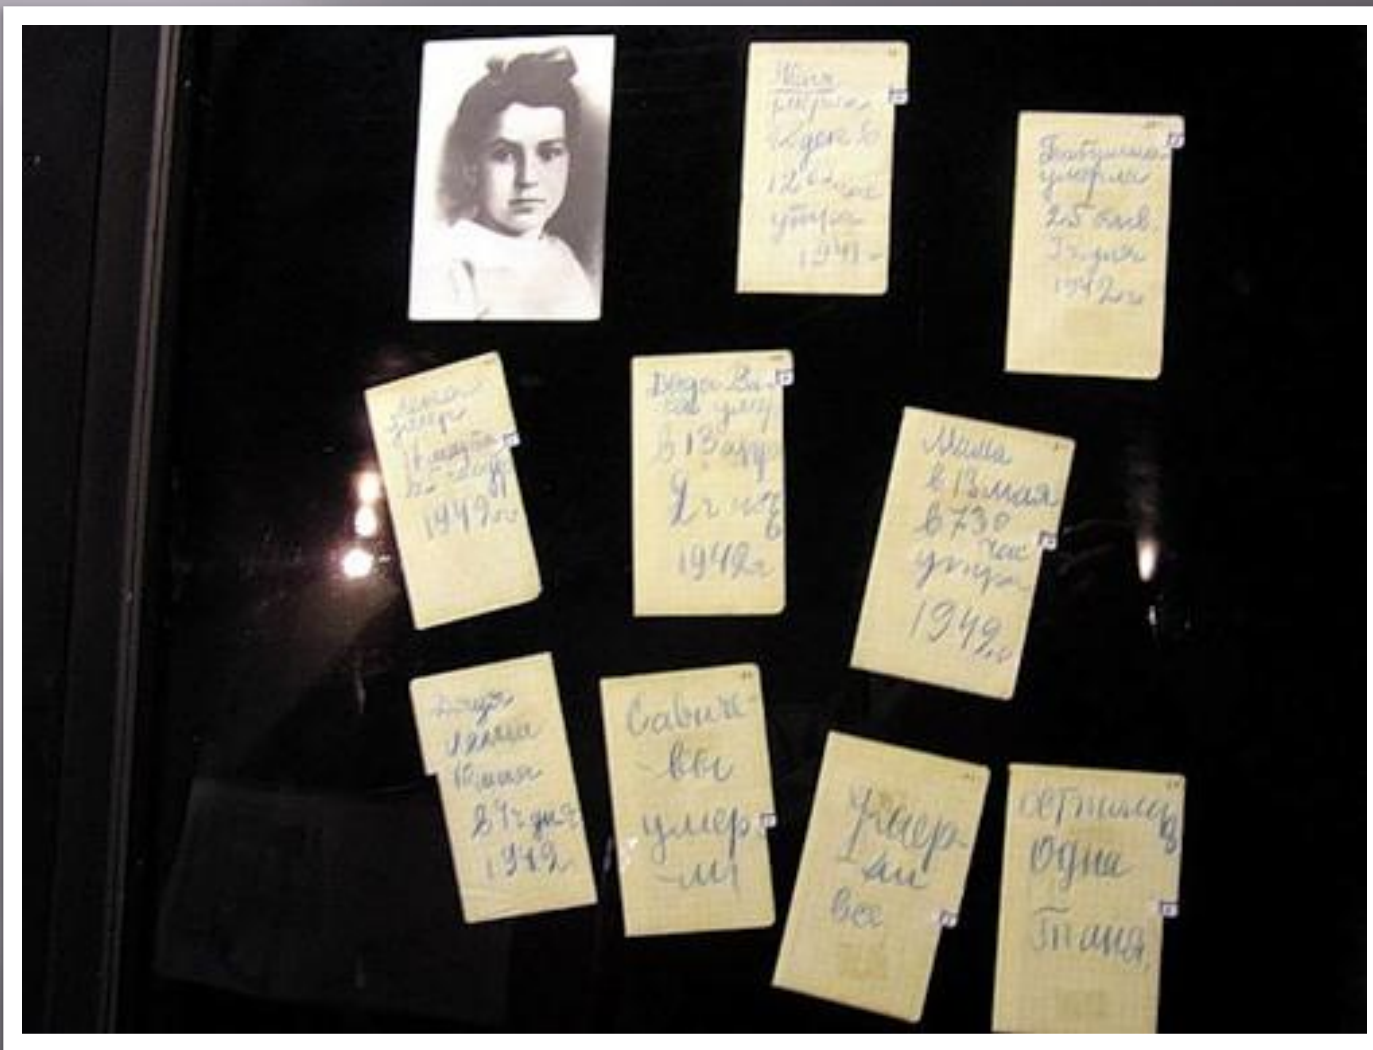 Женя
умерла
28 дек в
12 00 час
утра
1941 г
Бабушка
умерла
25 янв.
3 ч. дня
1942 г.
Лека
умер
17 марта
1942 г
Дядя Ва
ся умер
в 13 апр
2 ч ноч
1942 г
Мама
в 13 мая
в 730
час
утра
1942 г
Дядя
Леша
10 мая
в 4 ч дня
1942
Савиче-
-вы
умер-
-ли
Умер-
-ли
все
Осталась
одна
Таня.